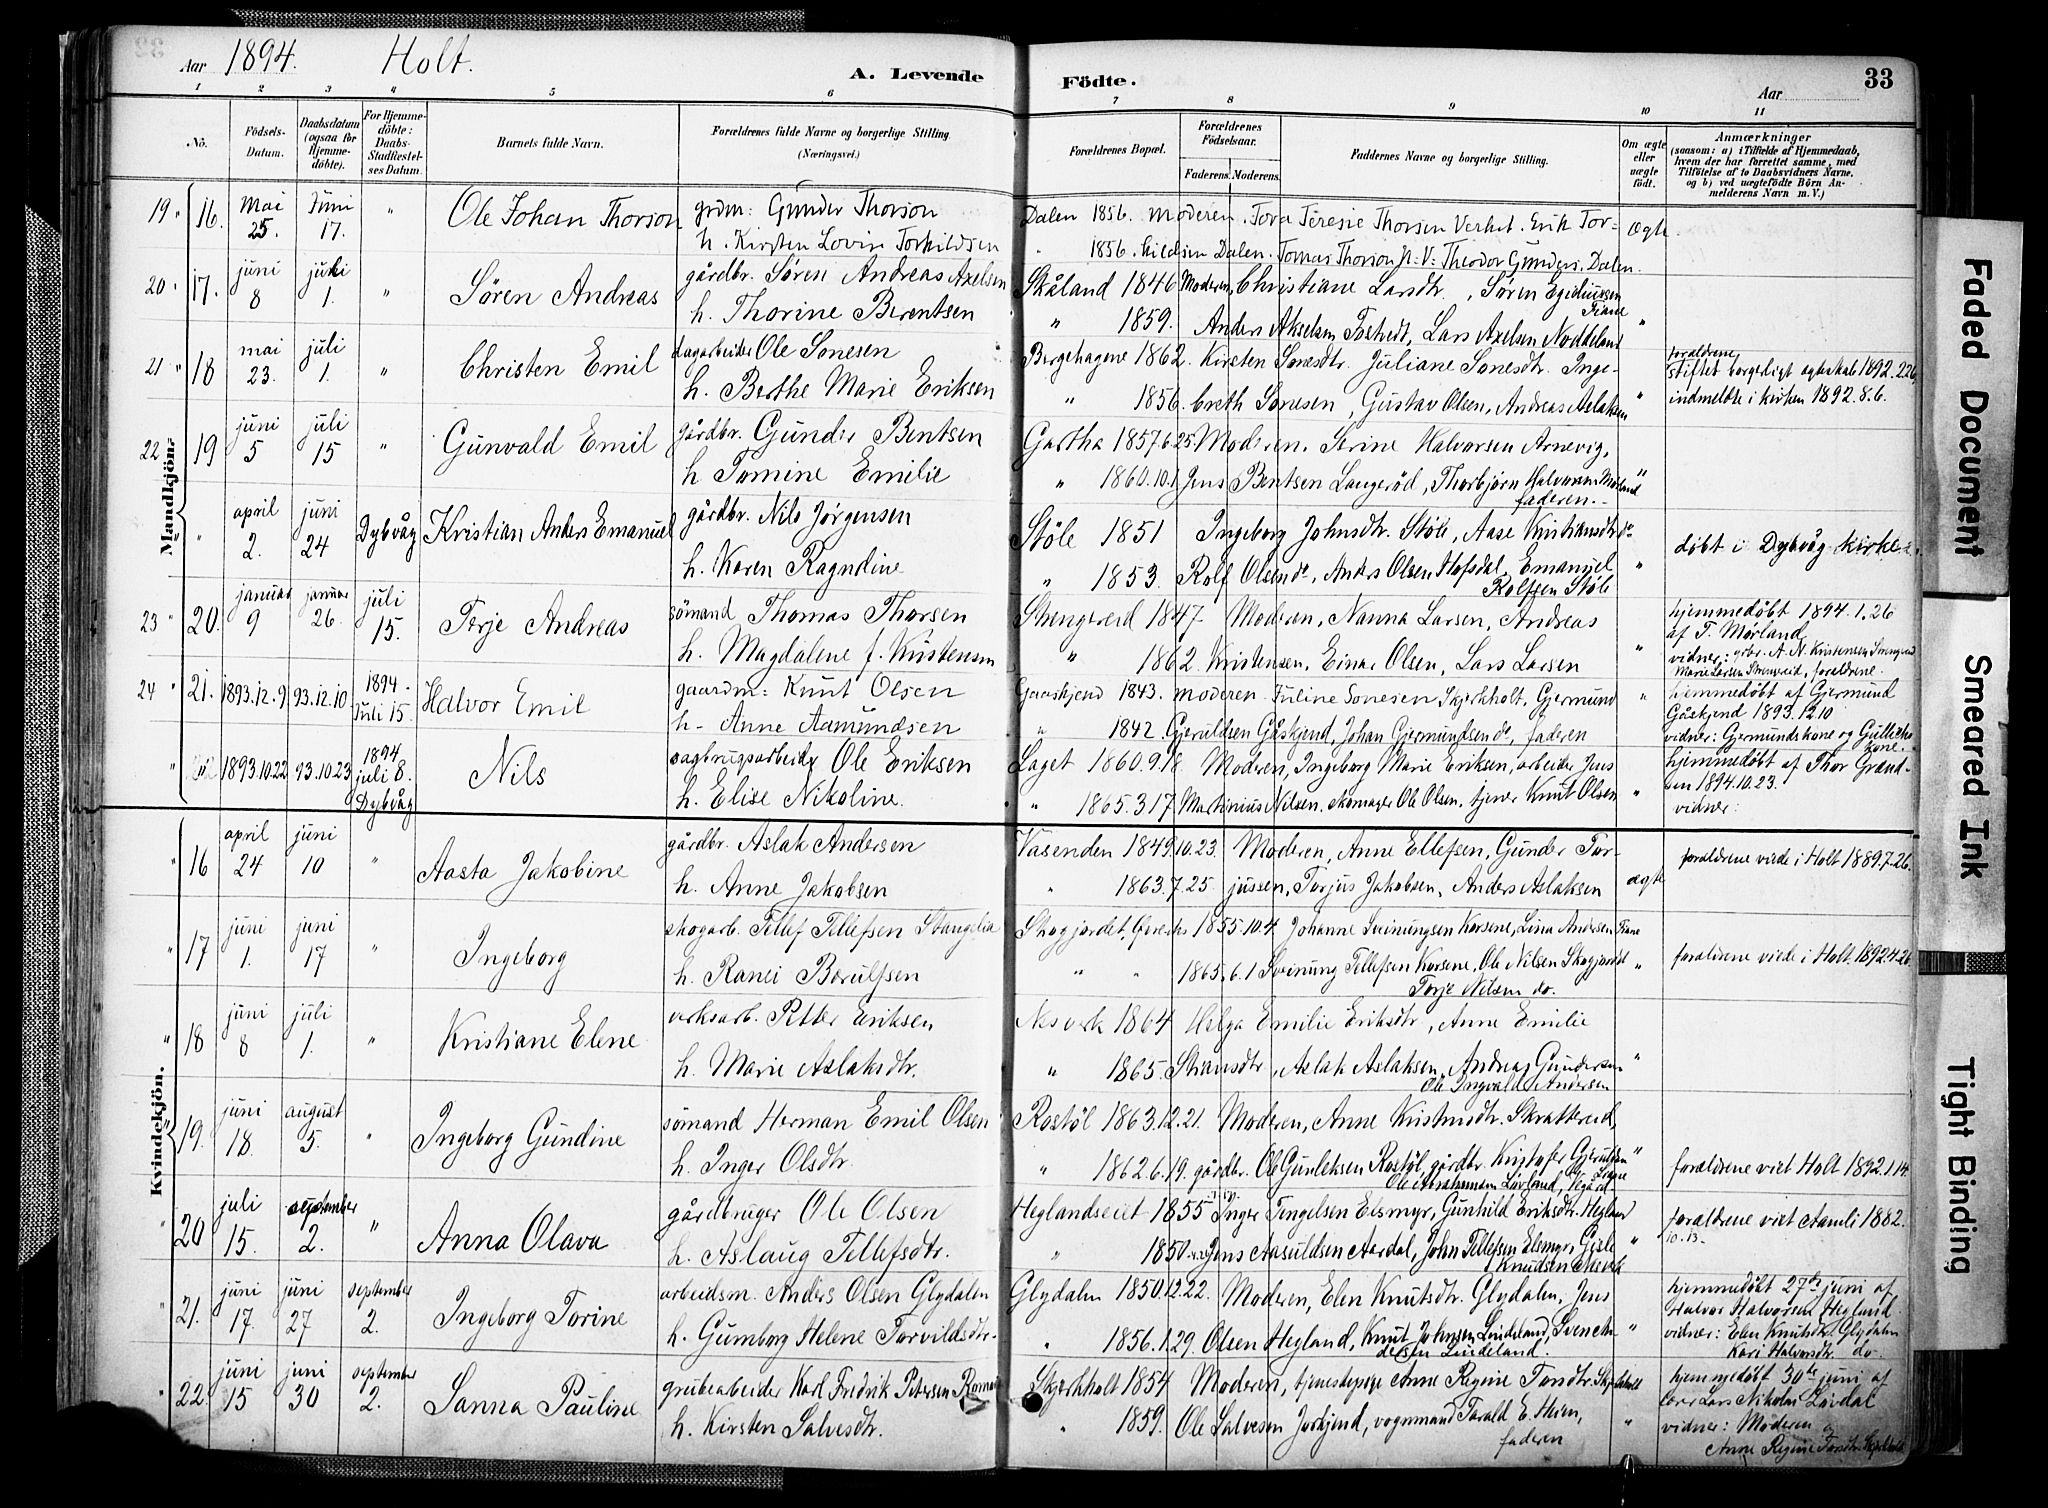 Aar 1894. Holt. A. Levende Födte. Aar 33
1 2 3 4 5 6 7 8 9 10 11
No. Födsels-Datum. Daabsdatum (ogsaa for Hjemmedöbte). For Hjemmedöbte: Daabs-Stadfæstelses Datum. Barnets fulde Navn. Forældrenes fulde Navne og borgerlige Stilling (Næringsvei.) Forældrenes Bopæl. Forældrenes Födselsaar. Faderens. Moderens. Faddernes Navne og borgerlige Stilling. Om ægte eller uægte födt. Anmærkninger (saasom: a) i Tilfælde af Hjemmedaab, hvem der har forrettet samme, med Tilföielse af to Daabsvidners Navne, og b) ved uægtefödte Börn Anmelderens Navn m. V.)
Mandkjön.
19 " 16. Mai 25. Juni 17. " Ole Johan Thorson grdm: Gunder Thorson Dalen 1856. Moderen. Tora Teresie Thorsen Verket. Erik Tor- ægte
h. Kirsten Lovise Torkildsen " 1856. kildsen Dalen. Tomas Thorson N. V. Theodor Gunders. Dalen.
20 " 17. juni 8 juli 1. " Søren Andreas gårdbr. Søren Andreas Axelsen Skåland 1846 Moderen, Christiane Larsdtr., Søren Egidiussen Fiane
h. Thorine Berentsen " 1859. Anders Akselsen Fostvedt, Lars Axelsen Noddeland "
21 " 18 mai 23. juli 1. " Christen Emil dagarbeider Ole Sonesen Bergehagene 1862. Kirsten Sonesdtr. Juliane Sonesdtr. Inge- forældrene stiftet borgerligt egteskab 1892.2.26
h. Berthe Marie Eriksen " 1856. breth Sonesen, Gustav Olsen, Andreas Aslaksen " indmeldte i kirken 1892.8.6.
22 " 19 juni 5 juli 15 " Gunvald Emil gårdbr. Gunder Bentsen Gartha 1857.6.25. Moderen. Serine Halvorsen Arnevig,
h Tomine Emilie " 1860.10.1 Jens Bentsen Langerød, Thorbjørn Halvorsen Mørland "
faderen.-
" april 2. juni 24 Dybvåg Kristian Anders Emanuel gårdbr. Nils Jørgensen Støle 1851 Ingeborg Johnsdtr. Støle, Aase Kristiansdtr do døbt i Dybvåg kirke.
h. Karen Ragndine " 1853. Rolf Olsen do, Anders Olsen Hofsdal, Emanuel "
Rolfsen Støle
23 " 20. januar 9 januar 26. juli 15. Terje Andreas sømand Thomas Thorsen Strengereid 1847 Moderen, Nanna Larsen, Andreas hjemmedøbt 1894.1.26
af T. Mørland
h. Magdalene f. Kristensen " 1862. Kristensen, Einar Olsen, Lars Larsen " vidner: grbr. A. N. Kristensen
Marie Larsen Strengereid, forældrene.
24 " 21. 1893.12.9 93.12.10 1894. Juli 15. Halvor Emil gaardm: Knut Olsen Gaaskjend 1843. Moderen. Juline Sonesen Skjerkholt, Gjermund " hjemmedøbt af Gjermund
Gåskjend 1893.12.10
h. Anne Aamundsen " 1842. Gjeruldsen Gåskjend, Johan Gjermundsen do, faderen vidner: Gjermundskone og
" 1893.10.22 93.10.23 1894 juli 8. Dybvåg Nils sagbrugsarbeider Ole Eriksen Laget 1860.9.18. Moderen, Ingeborg Marie Eriksen, arbeider Jens hjemmedøbt af Thor Grand-
sen 1894.10.23.
h. Elise Nikoline. " 1865.3.17 Martinius Nilsen, skomager Ole Olsen, tjener Knut Olsen " vidner:
Kvindekjön.
" 16 april 24 juni 10 " Aasta Jakobine gårdbr. Aslak Andersen Vasenden 1849.10.23. Moderen, Anne Ellefsen, Gunder Tor- forældrene viede i Holt 1889.7.26.
h. Anne Jakobsen " 1863.7.25 jussen, Torjus Jakobsen, Anders Aslaksen ægte
" 17 juni 1. juni 17 " Ingeborg skogarb. Tellef Tellefsen Stangelia Skogjordet, 1855.10.4 Johanne Sveinungsen Korsene, Lina Andersen Fiane
h. Ranei Børulfsen " " 1865.6.1 Sveinung Tellefsen Korsene, Ole Nilsen Skogjordet " forældrene viede i Holt. 1892.4.26.
Torje Nilsen do.
" 18 juni 8 juli 1. " Kristiane Elene verksarb. Petter Eriksen Nesverk 1864 Helga Emilie Eriksdtr, Anne Emilie
h. Marie Aslaksdtr. " 1865. Stiansdtr, Aslak Aslaksen, Andreas Gundersen "
Ole Ingvald Andersen
" 19. juni 18. august 5. " Ingeborg Gundine sømand Herman Emil Olsen Rostøl 1863.12.21. Moderen, Anne Kristensdtr. Skrattereid,
h. Inger Olsdtr. " 1862.6.19. gårdbr. Ole Gunleksen Rostøl, gårdbr. Kristofer Gjeruldsen " forældrene viet Holt 1892.1.14
Ole Abrahamsen Løvland, Vegård
" 20 juli 15. september 2. " Anna Olava gårdbruger Ole Olsen Heglandseiet 1855 Inger Tengelsen Elsmyr, Gunhild Eriksdtr. Hegland forældrene viet Aamli 1882.
10.13.
h. Aslaug Tellefsdtr. " 1850. Jens Aasuldsen Aardal, John Tellefsen Elsmyr, Gisle "
Knudsen
" 21. juni 17. juni 27 september 2. Ingeborg Torine arbeidsm. Anders Olsen Glydalen Glydalen 1850.12.22. Moderen, Elen Knutsdtr. Glydalen, Jens hjemmedøbt 27de juni af
Halvor Halvorsen Hegland
h. Gumborg Helene Torvildsdtr. " 1856.1.29. Olsen Hegland, Knut Johnsen Lindeland, Sven An- " vidner: Elen Knutsdtr. Glydalen
dersen Lindeland. Kari Halvorsdtr. do.
" 22. juni 15 juni 30 september 2. Sanna Pauline grubearbeider Karl Fredrik Petersen Skjerkholt 1854 Moderen, tjenestepige Anne Regine Tondtr. Skjerkholt hjemmedøbt 30te juni af
Lars Nikolai Løvdal
h. Kirsten Salvesdtr. " 1859. Ole Salvesen Jorkjend, vognmand Torald E. Heien, " vidner: Moderen og
faderen Anne Regine Tondtr. Skjerkholt
Faded Document
Smeared Ink
Tight Binding